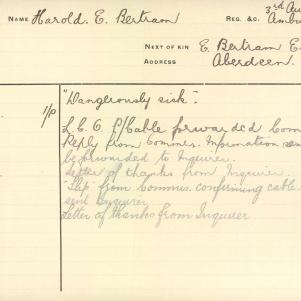 NAME Harold. E. Bertram REG. &C. 3rd Au
NEXT OF KIN E. Bertram E
ADDRESS Aberdeen.
1/0 "Dangerously sick".
L.C.O. Cable forwarded Com
Reply from Commrs. Information
be forwarded to Inquirer.
Letter of thanks from Inquirer.
Slip from Commrs. confirming cable.
sent Enquirer
Letter of thanks from Inquirer